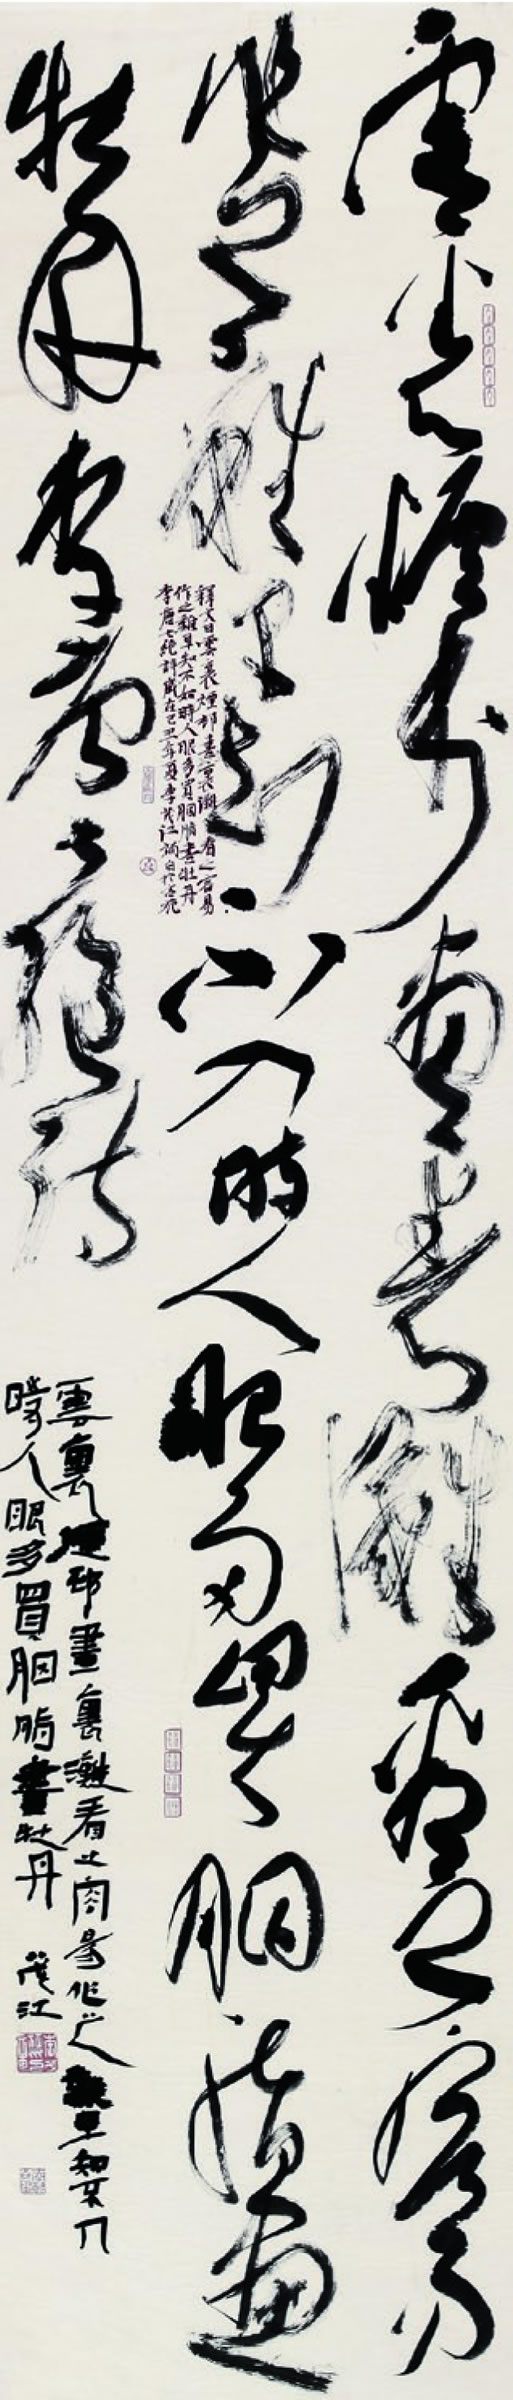 雲裏煙村畫裏灘看之容易
作之難早知不入時人眼多買胭脂畫
牡丹李唐七絕詩
釋文曰雲裏煙邨畫裏灘看之容易
作之難早知不如時人眼多買胭脂畫牡丹
李唐七絕詩歲在己丑年夏李茂江
雲裏煙邨畫裏灘看之容易作之難早知不入
時人眼多買胭脂畫牡丹 茂江